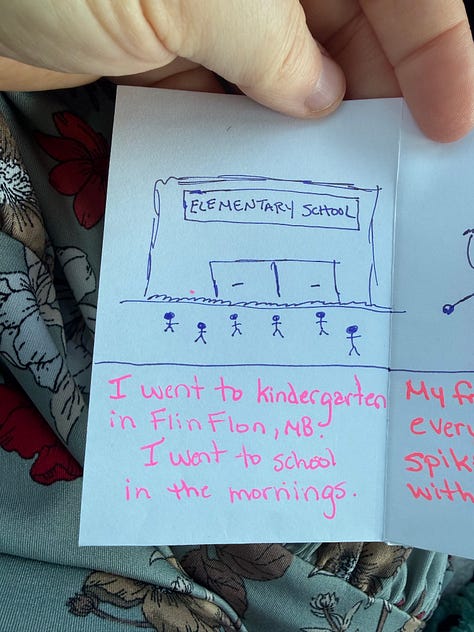 ELEMENTARY SCHOOL
I went to kindergarten
in Flin Flon, MB.
I went to school
in the mornings.
My
every
with